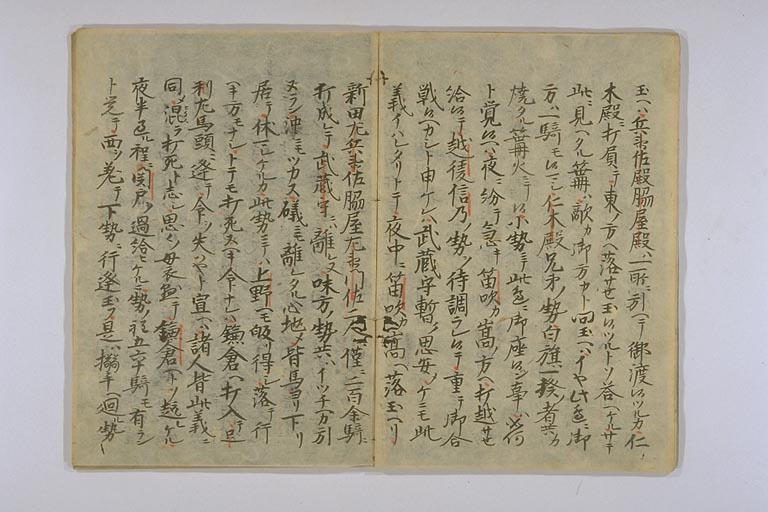 玉ヘハ兵衛佐殿脇屋殿ハ一所ニ引ヘテ御渡ノツルカ仁
木殿ニ打負テ東ノ方ヘ落サセ玉ヒツルトソ答ヘケルサテ
此ニ見ヘタル篝ハ敵カ御方カト問玉ヘハイヤ此邊ニ御
方ハ一騎モ候ハシ仁木殿兄弟ノ勢白旗一揆ノ者共カ
焼タル篝火ニテ候小勢ニテ此邊ニ御座候ハン事ハ如何
ト覚候ヘハ夜ニ紛テ急キ笛吹カ嵩ノ方ヘ打越サセ
給候テ越後信乃ノ勢ヲ待調ラレ候テ重テ御合
戦候ヘカシト申ケレハ武蔵守暫ク思安シケニモ此
義イハレタリトテ夜中ニ笛吹カ嵩ヘ落玉ヘリ
新田左兵衛佐脇屋左衛門佐二人ハ僅ニ二百余騎ニ
打成レテ武蔵守ニハ離レヌ味方ノ勢共ハイツチヘカ引
ヌラン沖ニモツカス礒ニモ離レタル心地シテ皆馬ヨリ下リ
居テ休ミケルカ此勢ニテハ上野ヘモ皈リ得シ落テ行
ヘキ方モナシトテモ打死スヘキ命ナレハ鎌倉ヘ打入テ足
利左馬頭ニ逢テ命ヲ失ハヤト宣ヘハ諸人皆此義ニ
同シ混ラ打死ト志シ思々ノ母衣懸テ鎌倉ヘトソ趣レケル
夜半過ル程ニ関戸ヲ過給ヒケルニ勢ノ程五六千騎モ有ラン
ト覚テ西ヲ差テ下ル勢ニ行逢玉フ是ハ搦手ヘ廻ル勢ニ